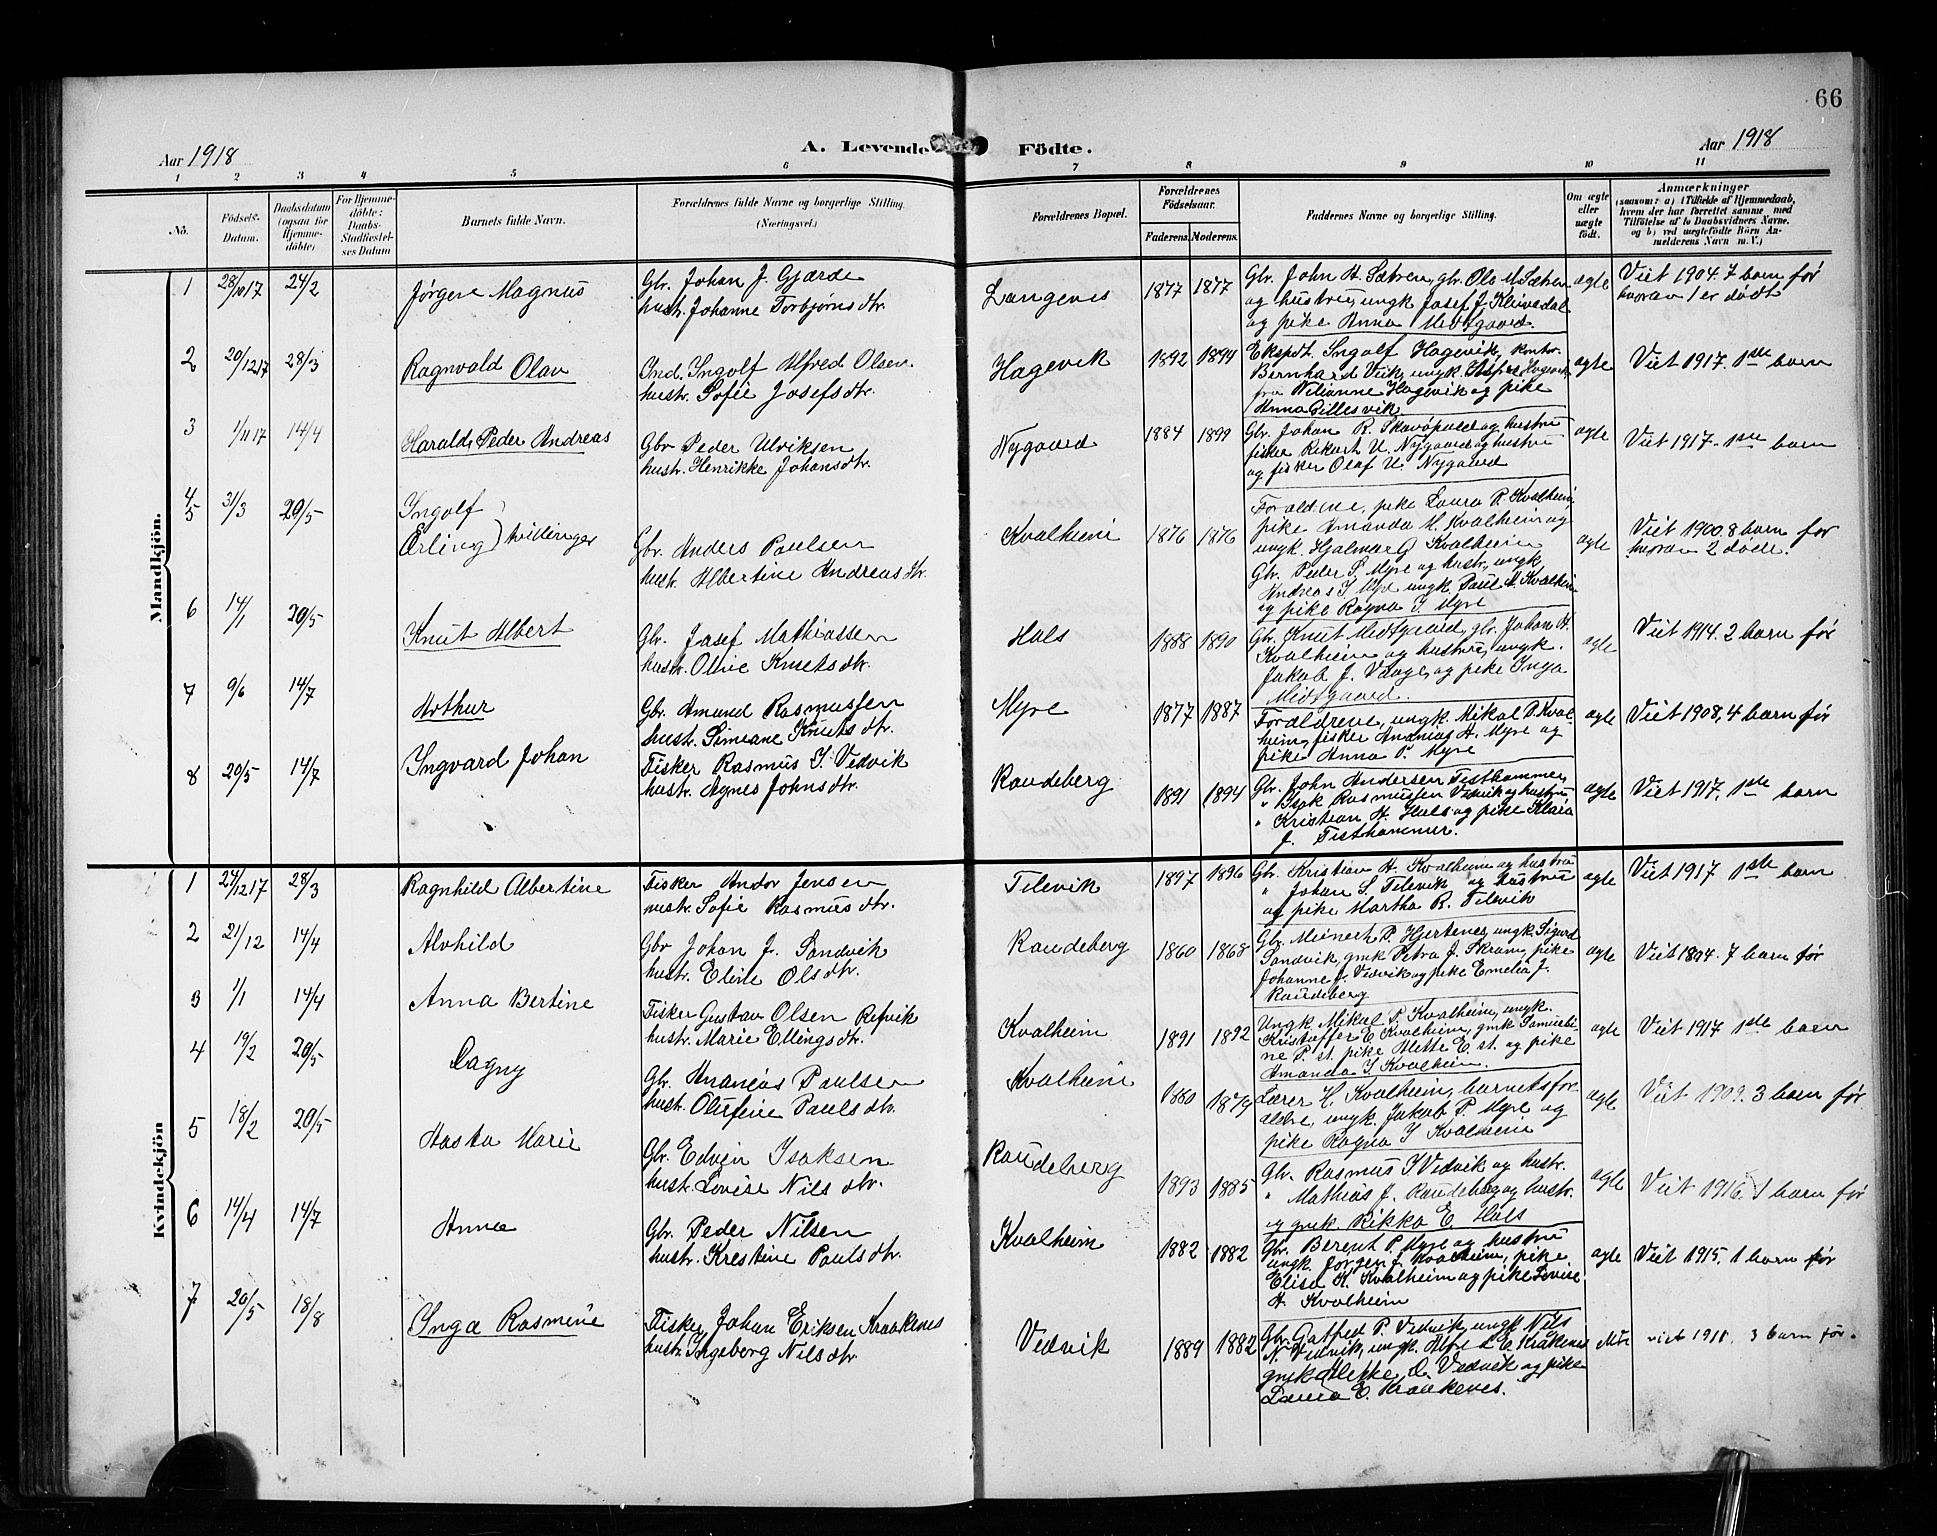 66
Aar 1918
A. Levende Födte.
Aar 1918
1 2 3 4 5 6 7 8 9 10 11
No.
Födsels-Datum.
Daabsdatum (ogsaa for Hjemme-döbte)
For Hjemme-döbte: Daabs-Stadfæstel-ses Datum
Barnets fulde Navn.
Forældrenes fulde Navne og borgerlige Stilling. (Næringsvei.)
Forældrenes Bopæl.
Forældrenes Födselsaar.
Faderens. Moderens.
Faddernes Navne og borgerlige Stilling.
Om ægte eller uægte födt.
Anmærkninger
(saasom: a) i Tilfælde af Hjemmedaab,
hvem der har forrettet samme med
Tilföielse af to Daabsvidners Navne.
og b) ved uægtefödte Börn An-
melderens Navn m. V.)
Mandkjön.
1 28/10 17 24/2 Jørgen Magnus
Gbr. Johan J. Gjærde
hustr. Johanne Torbjørnsdtr.
Langenes 1877 1877
Gbr. John H. Sætren, gbr. Ole M. Sætren
og hustru, ungk. Josef J. Kleivedal
og pike Anna Midtgaard
ægte
Viet 1904. 7 barn før
hvorav 1 er dødt
2 20/12 17 28/3 Ragnvald Olav
Ind. Ingolf Alfred Olsen
hustr. Sofie Josefsdtr.
Hagevik 1892 1894
Ekspdt. Ingolf Hagevik, kontor.
Bernhard Veik, ungk.
fru Nilianne Hagevik og pike
Anna Gillesvik
ægte
Viet 1917. 1ste barn
3 1/11 17 14/4 Harald Peder Andreas
Gbr. Peder Ulriksen
hustr. Henrikke Johansdtr.
Nygaard 1884 1899
Gbr. Johan R. Skavøpold og hustru
fisker Rikart U. Nygaard og hustru
og fisker Olaf U. Nygaard
ægte
Viet 1917. 1ste barn
4 5 31/3 20/5 Ingolf
Erling tvillinger
Gbr. Anders Paulsen
hustr. Albertine Andreasdtr.
Kvalheim 1876 1876
Forældrene, pike Laura P. Kvalheim,
pike Amanda M. Kvalheim og
ungk. Hjalmar G. Kvalheim
Gbr. Peder S. Myre og hustr., ungk.
Andreas I. Myre ungk. Paul A. Kvalheim
og pike Ragna I. Myre
ægte
Viet 1900. 8 barn før
hvorav 2 døde.
6 14/1 20/5 Knut Albert
Gbr. Josef Mathiassen
hustr. Oline Knutsdtr.
Hals 1888 1890
Gbr. Knut Midtgaard, gbr. Johan A.
Kvalheim og hustru, ungk.
Jakob J. Vaage, og pike Inga
Midtgaard.
ægte
Viet 1914. 2 barn før
7 9/6 14/7 Arthur
Gbr. Amund Rasmussen
hustr. Simeane Knutsdtr.
Myre 1877 1887
Forældrene, ungk. Mikal P. Kval-
heim, fisker Ananias A. Myre og
pike Anna P. Myre
ægte
Viet 1908, 4 barn før
8 20/5 14/7 Ingvard Johan
Fisker Rasmus I. Vedvik
hustr. Agnes Johnsdtr.
Raudeberg 1891 1894
Gbr. John Andersen Festhammer,
" Isak Rasmussen Vedvik og hustru
" Kristian A. Hals og pike Klara
J. Festhammer.
ægte
Viet 1917. 1ste barn
Kvindekjön
1 24/12 17 28/3 Ragnhild Albertine
Fisker Andor Jensen
hustr. Sofie Rasmusdtr.
Tilevik 1897 1896
Gbr. Kristian A. Kvalheim og hustru
" Johan S. Tilevik og hustru
og pike Martha R. Tilevik
ægte
Viet 1917 1ste barn
2 21/12 14/4 Alvhild
Gbr. Johan J. Sandvik
hustr. Eline Olsdtr.
Raudeberg 1860 1868
Gbr. Meinert P. Hjertenes, ungk. Sigurd
Sandvik, gmk. Petra J. Skram, pike
Johanne J. Vedvik og pike Emelia J.
Raudeberg
ægte
Viet 1894. 7 barn før
3 1/1 14/4 Anna Bertine
Fisker Gustav Olsen Refvik
hustr. Marie Ellingsdtr.
Kvalheim 1891 1892
Ungk. Mikal P. Kvalheim, ungk.
Kristoffer E. Kvalheim, gmk. Samueli-
ne P. st. pike Alette E. st. og pike
Amanda I. Kvalheim.
ægte
Viet 1917 1ste barn
4 19/2 20/5 Dagny
Gbr. Ananias Paulsen
hust. Olufine Paulsdtr.
Kvalheim 1880 1879
Lærer H. Kvalheim, barnetsfor-
ældre, ungk. Jakob P. Myre og
pike Ragna I. Kvalheim
ægte
Viet 1909. 3 barn før
5 18/2 20/5 Aasta Marie
Gbr. Edvin Isaksen
hust. Lovise Nilsdtr.
Raudeberg 1893 1885
Gbr. Rasmus I Vedvik og hustr.
" Mathias J. Raudeberg og hustr.
og gmk. Rikka E. Hals
ægte
Viet 1916. 1 barn før
6 14/4 14/7 Anna
Gbr. Peder Nilsen
hustr. Krestine Paulsdtr.
Kvalheim 1882 1882
Gbr. Berent P. Myre og hustru
ungk. Jørgen J. Kvalheim, pike
Elisa K. Kvalheim og pike Lovise
A. Kvalheim
ægte
Viet 1915. 1 barn før
7 20/5 18/8 Inga Rasmine
Fisker Johan Eriksen Kraakenes
hustr. Ingeborg Nilsdtr.
Vedvik 1889 1882
Gbr. Gotfred P. Vedvik, ungk Nils
N. Vedvik, ungk. Alfred E. Kråkenes
gmk. Alette O. Vedvik og pike
Laura E. Kraakenes.
viet 1911. 3 barn før.